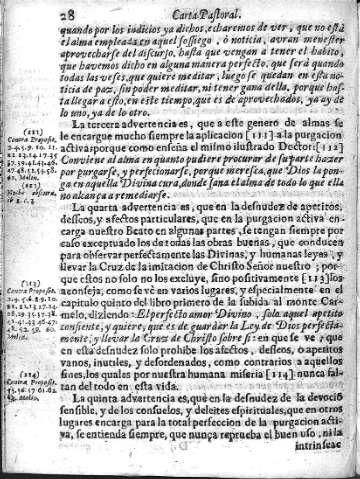 28 Carta Pastoral.
quando por los indicios ya dichos, echaremos de ver, que no està
el alma empleada en aquel sossiego, ò noticia, avran menester
aprovecharse del discurso, hasta que vengan à tener el habito,
que havemos dicho en alguna manera perfecto, que serà quando
todas las veses, que quiere meditar, luego se quedan en esta no-
ticia de paz, sin poder meditar, ni tener gana della, porque has-
ta llegar a esto, en este tiempo, que es de aprovechados, ya ay de
lo uno, ya de lo otro.
La tercera advertencia es, que a este genero de almas se
le encargue mucho siempre la aplicacion [111] a la purgacion
activa: porque como enseña el mismo ilustrado Doctor: [112]
Conviene al alma en quanto pudiere procurar de su parte hazer
por purgarse, y perfecionarse, porque meresca, que Dios la pon-
ga en aquella Divina cura, donde sana el alma de todo lo que ella
no alcança a remediarse.
La quarta advertencia es, que en la desnudez de apetitos,
desseos, y afectos particulares, que en la purgacion activa en-
carga nuestro Beato en algunas partes, se tengan siempre por
caso exceptuado los de todas las obras buenas, que conducen
para observar perfectamente las Divinas, y humanas leyes, y
llevar la Cruz de la imitacion de Christo Señor nuestro; por-
que estos no solo no los excluye, sino positivamente [113] los
aconseja; como se vè en varios lugares, y especialmente en el
capitulo quinto del libro primero de la subida al monte Car-
melo, diziendo: El perfecto amor Divino, sola aquel apetito
consiente, y quiere, que es de guardàr la Ley de Dios perfecta-
mente, y llevar la Cruz de Christo sobre si: en que se ve, que
en esta desnudez solo prohibe los afectos, desseos, ò apetitos
vanos, inutiles, y desordenados, como contrarios a aquellos
fines, los quales por nuestra humana miseria [114] nunca fal-
tan del todo en esta vida.
La quinta advertencia es, que en la desnudez de la devociõ
sensible, y de los consuelos, y deleites espirituales, que en otros
lugares encarga para la total perfeccion de la purgacion acti-
va, se entienda siempre, que nunca reprueba el buen uso, ni la
intrinseac
(111)
Contra Proposit.
(112)
(113)
Contra Proposit.
(114)
Contra Proposit.